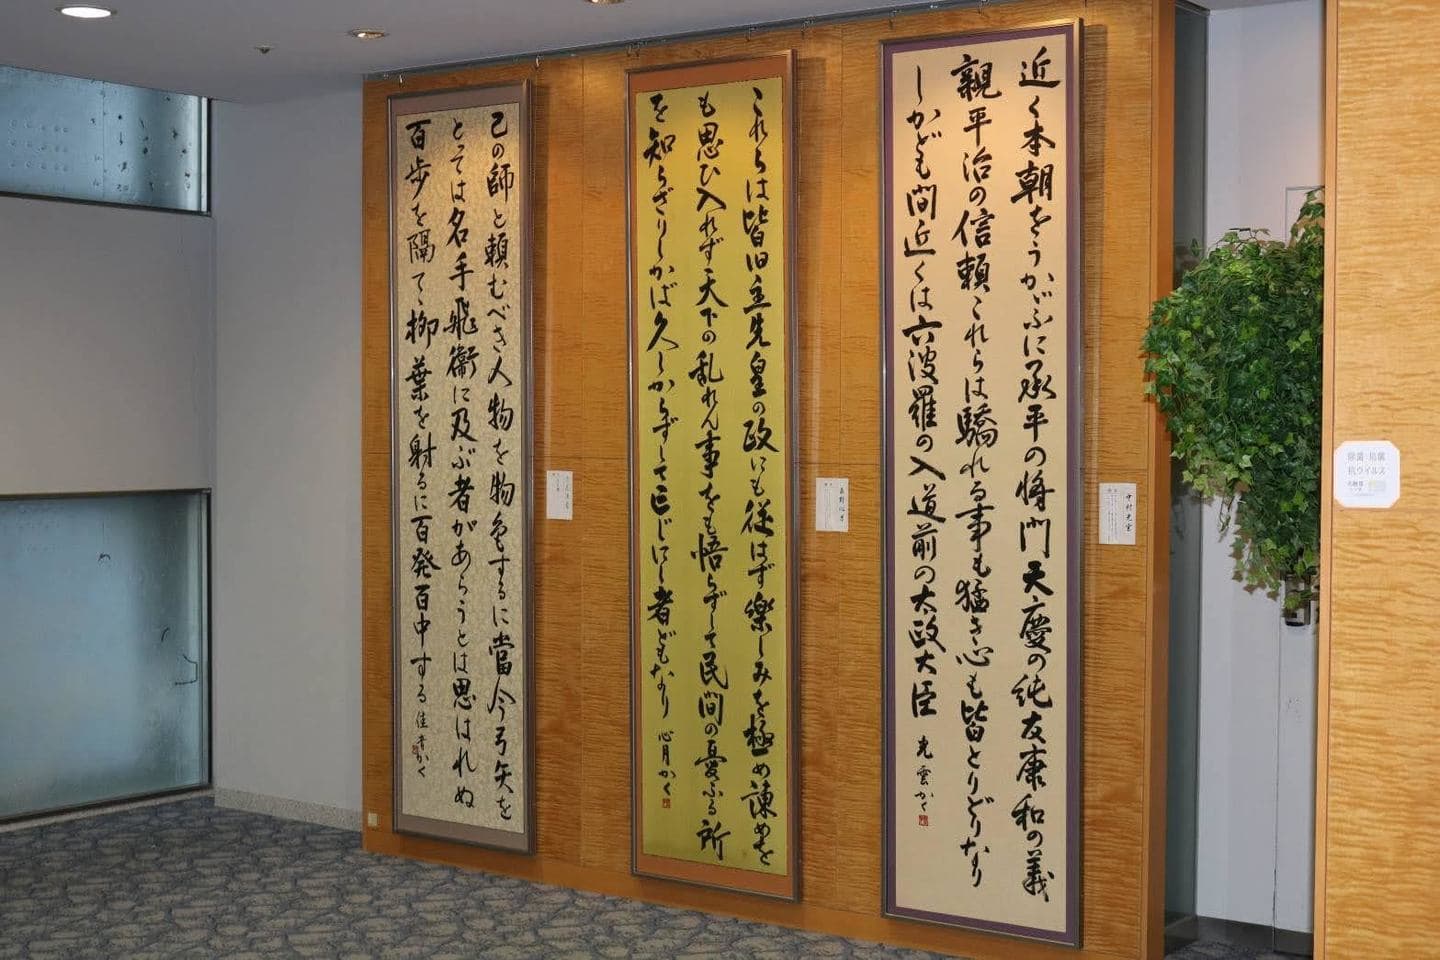 近く本朝をうかゞふに承平の将門天慶の純友康和の義
親平治の信頼これらは驕れる事も猛き心も皆とりどりなり
しかども間近くは六波羅の入道前の太政大臣 光雲かく
これらは皆旧主先皇の政にも従はず楽しみを極め諫めを
も思ひ入れず天下の乱れん事をも悟らずして民間の憂ふる所
を知らざりしかば久しからずして亡じにし者どもなり 心月かく
己の師と頼むべき人物を物色するに當今弓矢を
とっては名手飛衞に及ぶ者があらうとは思はれぬ
百歩を隔てゝ柳葉を射るに百発百中する 佳青かく
中村光雲
除菌・抗菌
抗ウイルス